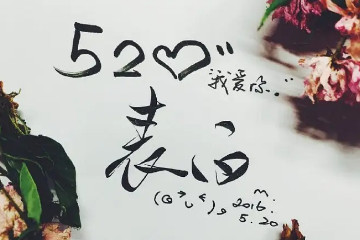 520"
我爱你."
表白
(⊙→∪←),
m.
2016.
5.20